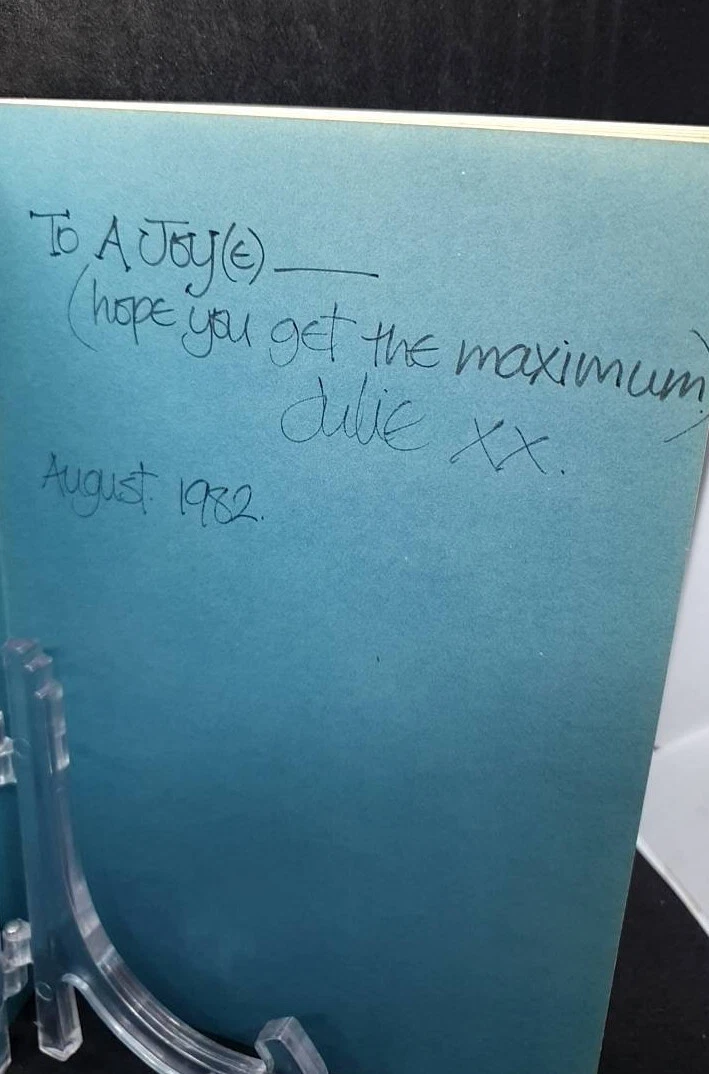 To A Joy(e) ——
(hope you get the maximum)
Julie xx.
August. 1982.